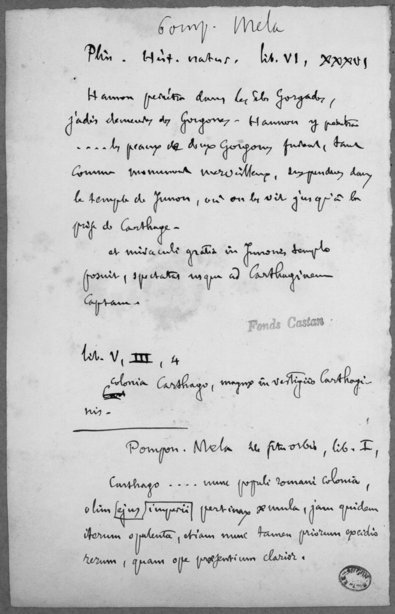 Pomp. Mela
Plin. Hist. natur. lib. VI, XXXVI
Hannon pénétra dans les îles Gorgades,
jadis demeures des Gorgones - Hannon y pénétra
.... les peaux de deux Gorgones furent, tant
comme monument merveilleux, suspendues dans
le temple de Junon, où on les vit jusqu'à la
prise de Carthage -
et miraculi gratia in Junonis templo
posuit, spectatas usque ad Carthaginem
captam.
Fonds Castan
lib. V, III, 4
colonia Carthago, magnæ in vestigiis Carthagi-
nis -
Pompon. Mela de situ orbis, lib. I,
Carthago .... nunc populi romani colonia,
olim ejus imperii pertinax æmula, jam quidem
iterum opulenta, etiam nunc tamen priorum excidio
rerum, quam ope præsentium clarior.